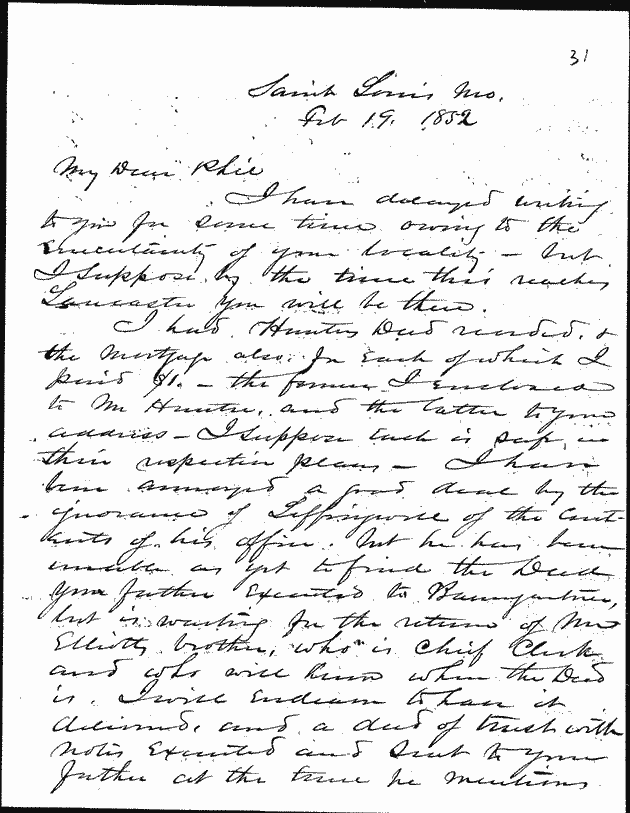 31
Saint Louis Mo.
Feb 19. 1852
My Dear Phil
I have delayed writing
to you for some time owing to the
uncertainty of your locality - but
I suppose by the time this reaches
Lancaster you will be there.
I had Hunters Deed recorded. &
the Mortgage also. In each of which I
paid $1. - the former I enclosed
to Mr Hunter, and the latter to your
address - I suppose Each is safe in
their respective places - I have
been annoyed a good deal by the
ignorance of Leffingwell of the Cont-
ents of his office. but he has been
unable as yet to find the Deed
your father Executed to Baumgartner,
but is waiting for the return of Mr
Elliotts brother, who is Chief Clerk
and who will know when the Deed
is. I will Endeavor to have it
delivered, and a deed of trust with
notes Executed and sent to your
father at the time he mentions